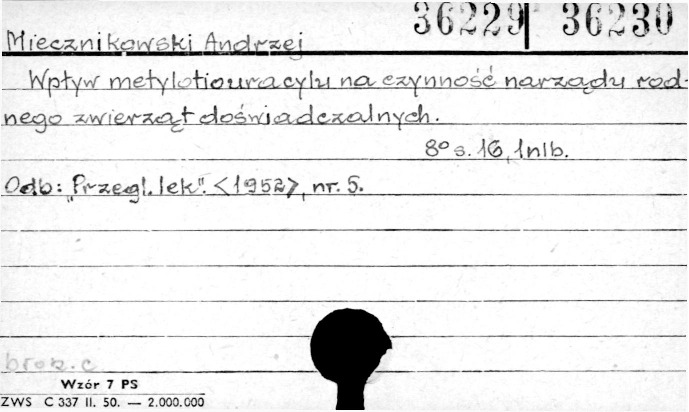 36229 36230
Miecznikowski Andrzej
Wpływ metylotiouracylu na czynność narządu rod-
nego zwierząt doświadczalnych.
8º s. 16, 1nlb.
Odb: "Przegl. lek". <1952>, nr. 5.
brosz. c
Wzór 7 PS
ZWS C 337 II. 50. — 2.000.000